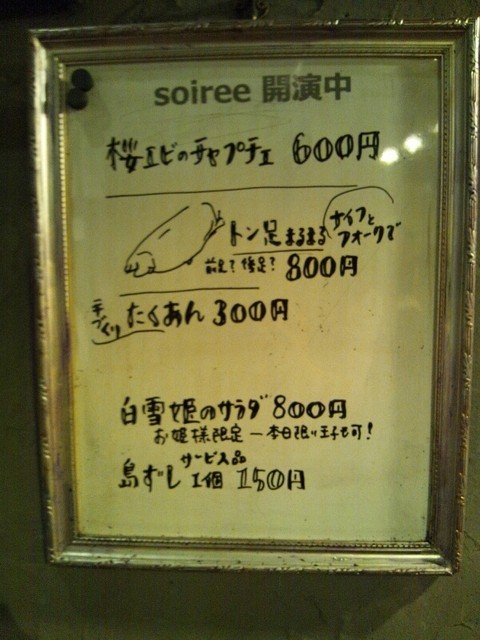 soiree 開演中
桜エビのチャプチェ 600円
トン足まるまる ナイフとフォークで
前足?後足? 800円
手づくり たくあん 300円
白雪姫のサラダ 800円
お姫様限定 一本日限り王子も可!
サービス品
島ずし 1個 150円